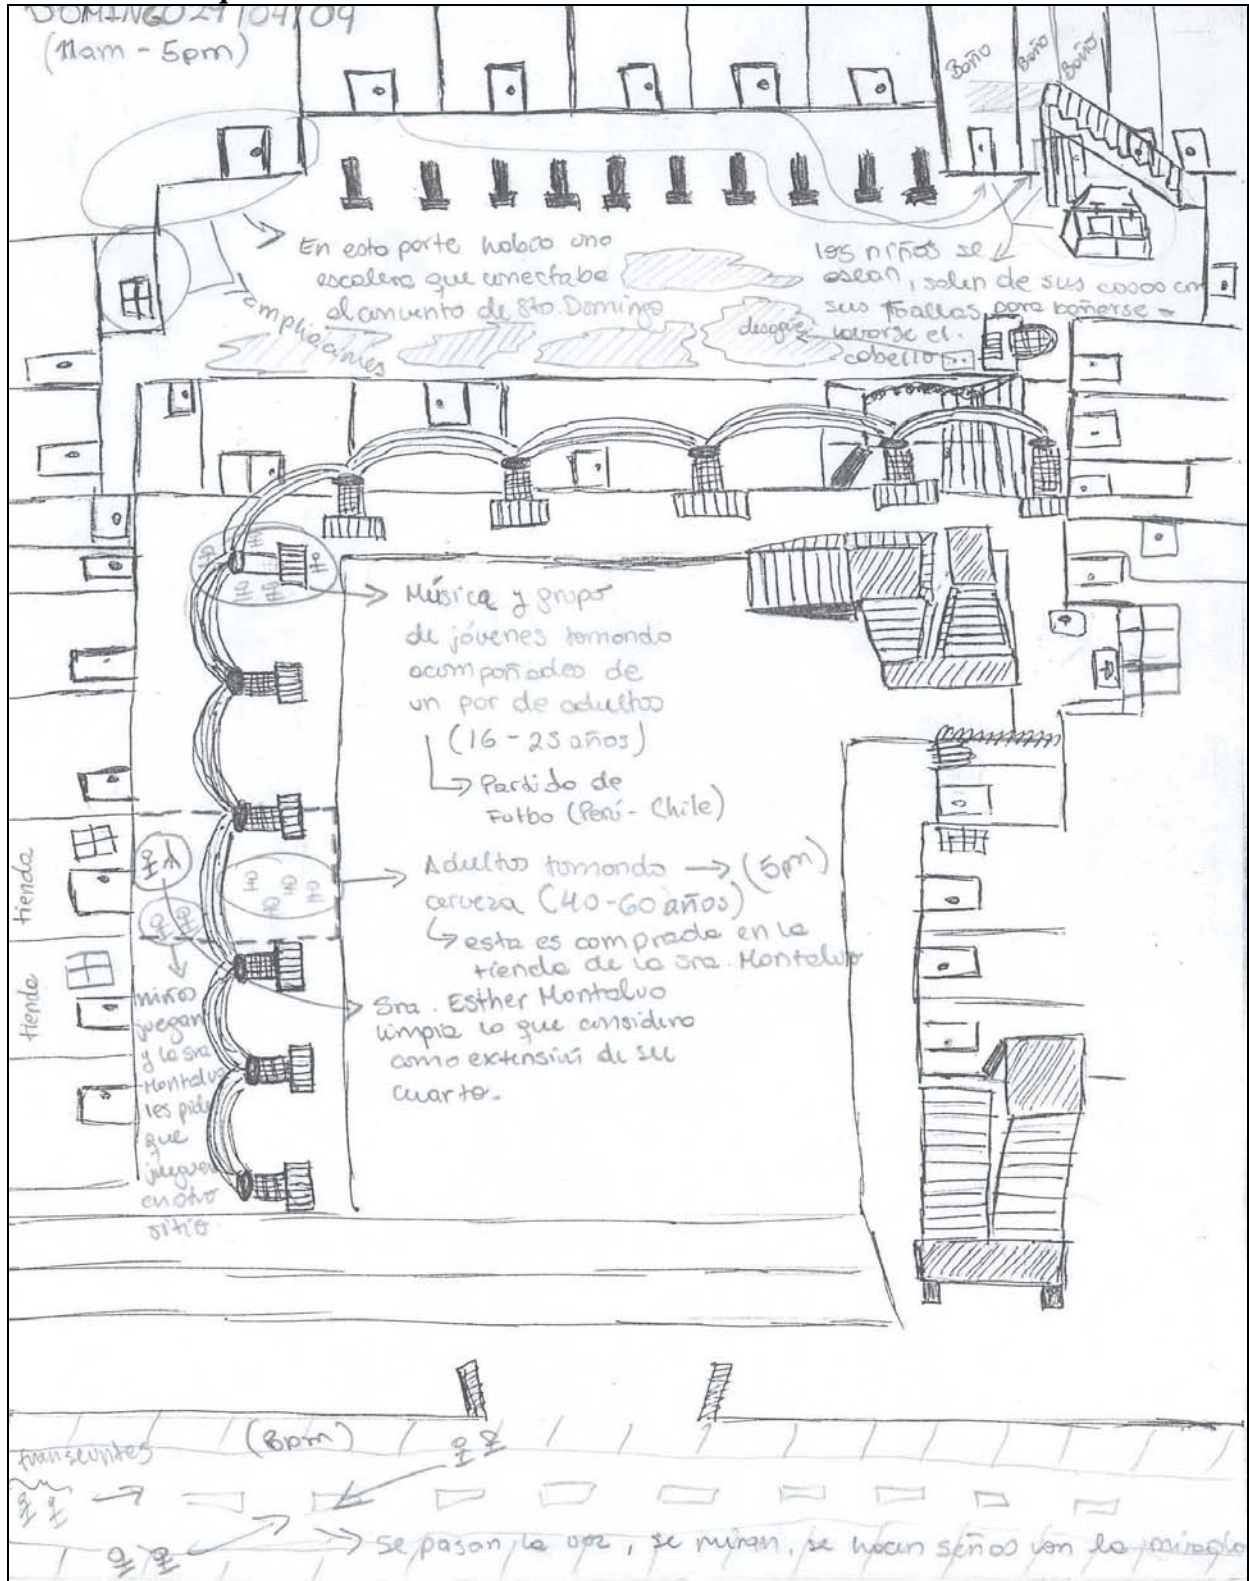 DOMINGO 29/04/09
(11am - 5pm)
Baño
Baño
Baño
En esta parte había una
escalera que conectaba
el convento de Sto. Domingo
ampliaciones
los niños se
asean, salen de sus casas con
sus toallas para bañarse -
lavarse el
cabello
desague
Música y grupo
de jóvenes tomando
acompañados de
un par de adultos
(16 - 25 años)
Partido de
Futbo (Perú - Chile)
Adultos tomando → (5pm)
cerveza (40-60 años)
esta es comprada en la
tienda de la sra. Montalvo
Sra. Esther Montalvo
limpia lo que considera
como extensión de su
cuarto.
tienda
tienda
niños
juegan
y la sra
Montalvo
les pide
que
jueguen
en otro
sitio.
(8pm)
transeuntes
se pasan la voz, se miran, se hacen señas con la mirada